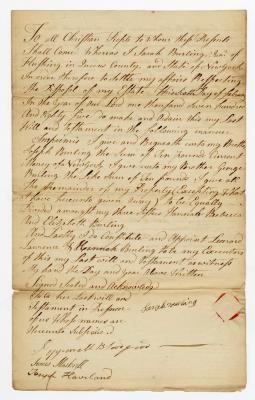 To All Christian People to Whom these Presents
Shall Come Whereas I Sarah Burling Jun. of
Flushing in Queens County and State of New York
Am ever therefore to Settle my affairs Respecting
the Disposal of my Estate this day of
In the Year of our Lord one thousand Seven Hundred
And Eighty five do make and Ordain this my Last
Will and Testament in the following manner
Imprimis I Give and Bequeath unto my Brother
Joseph Burling the Sum of Ten pounds Current
Money of New York I give unto my Brother George
Burling the Like Sum of Ten pounds I give
the remainder of my Property (Excepting What
I have heretofore given away) To be Equally
Divided amongst my three Sisters Hannah Rebecca
And Elizabeth Burling
And Lastly I do Constitute and Appoint Leonard
Lawrence & Hannah Burling to be my Executors
of this my Last will and Testament as witness
My hand the Day and Year Above Written
Signed Sealed and Acknowledged
To be her Last will and
Testament in Presence
of us Whose names are
Hereunto Subscribed
Sarah Burling
James
Joseph Haviland